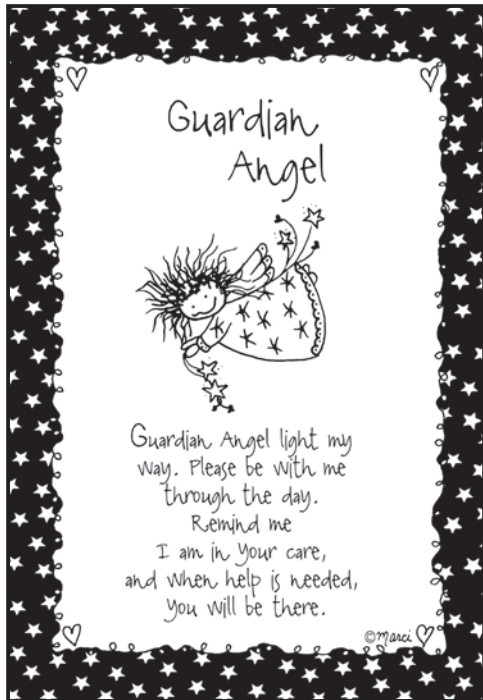 Guardian
Angel
Guardian Angel light my
way. Please be with me
through the day.
Remind me
I am in your care,
and when help is needed,
you will be there.
©Marci